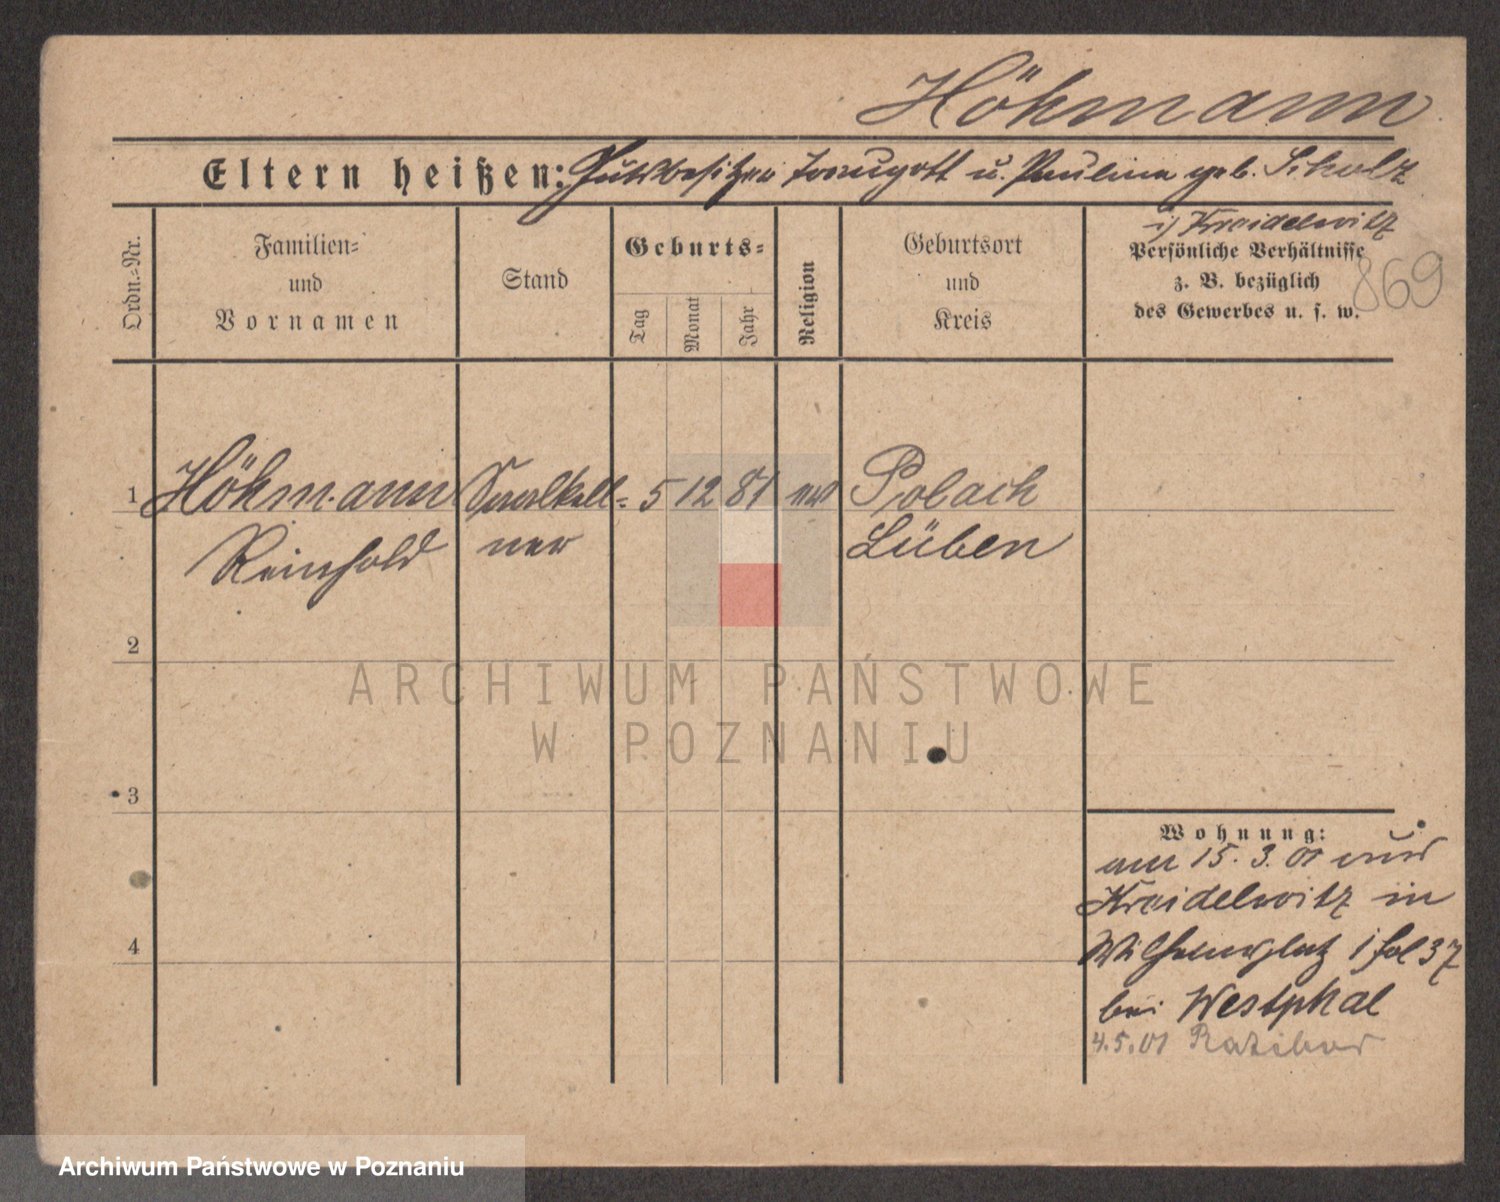 Höhmann
Eltern heißen: Gutsbesitzer Traugott u. Paulina geb. Scholz
i/ Kreidelwitz
869
Ordn.-Nr.
Familien-
und
Vornamen
Stand
Geburts-
Tag
Monat
Jahr
Religion
Geburtsort
und
Kreis
Persönliche Verhältnisse
z. B. bezüglich
des Gewerbes u. s. w.
1 Höhmann Saalkell- 5 12 81 ev Polach
Reinhold ner Lüben
2
3
4
Wohnung:
am 15. 3. 01 aus
Kreidelwitz in
Wilhelmsplatz 1 fol 37
bei Westphal
4.5.01 Ratibor
ARCHIWUM PAŃSTWOWE
W POZNANIU
Archiwum Państwowe w Poznaniu